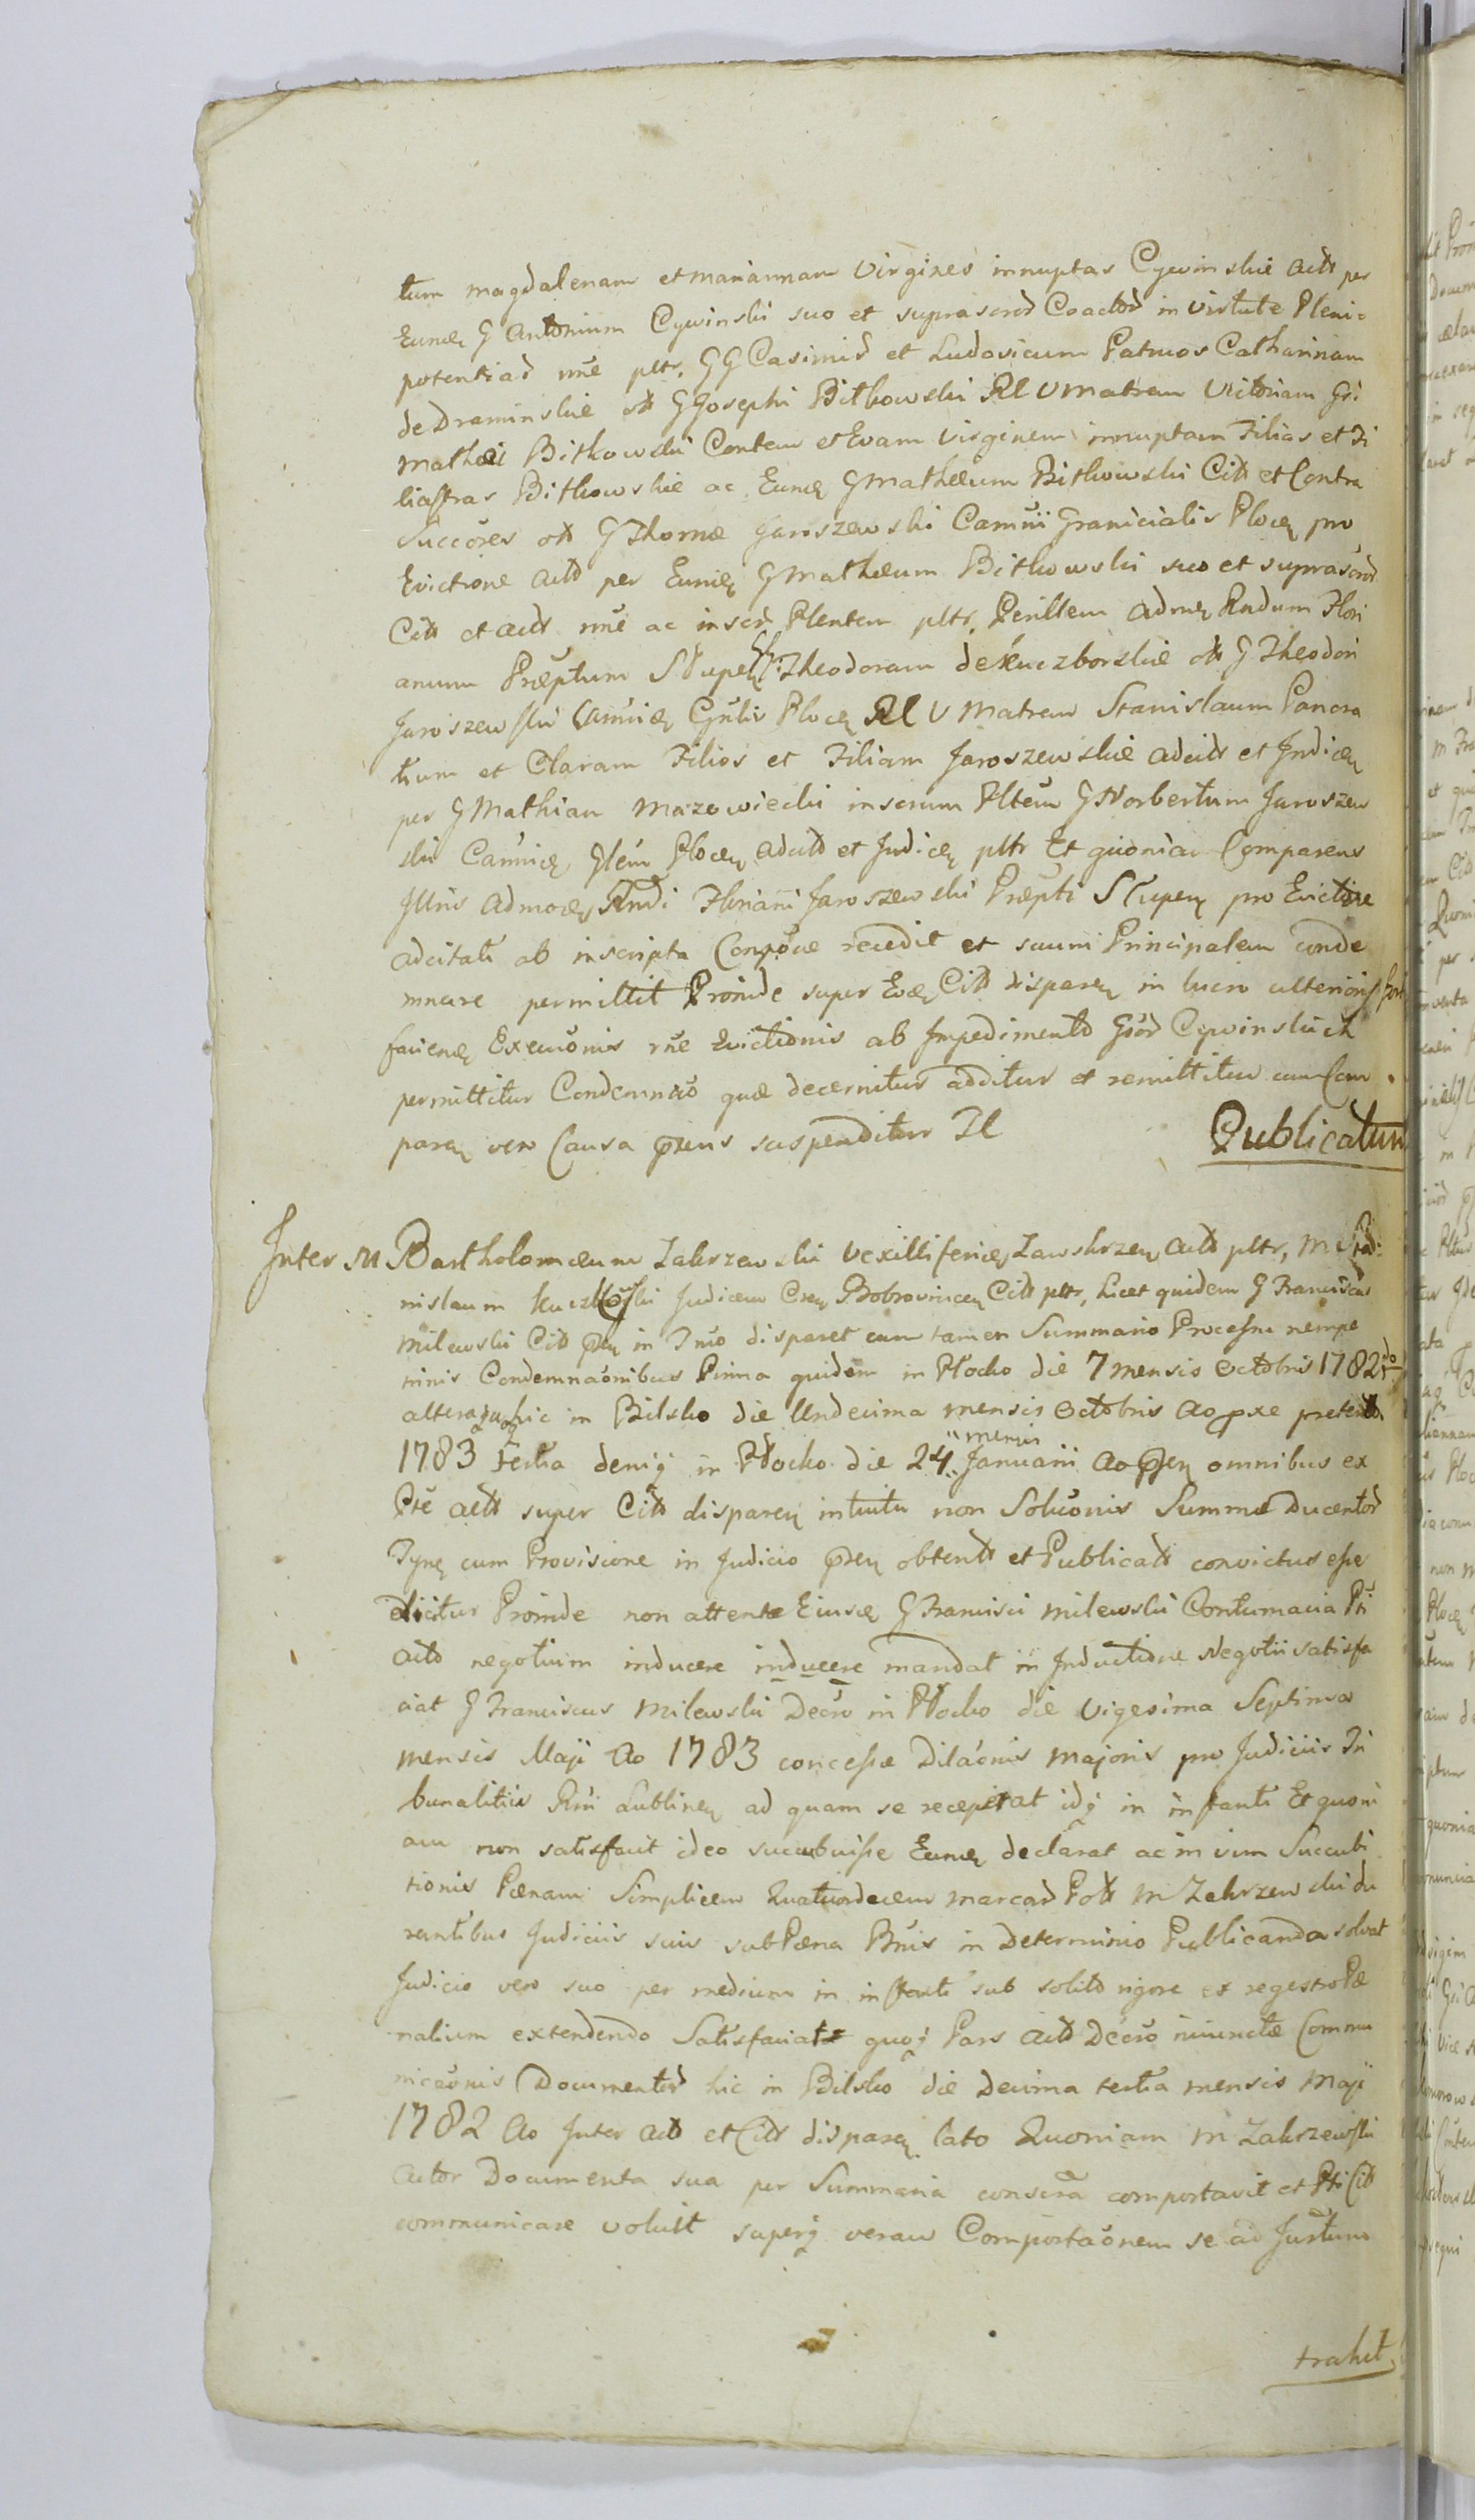 tum Magdalenam et Mariannam Virgines innuptas Cywinskie Actt per
Eunđ G Antonium Cywinski suo et suprascrod Coactod in virtute Pleni-
potentiad nn̄e pltr. GG Casimid et Ludovicum Patruos Catharinam
de Draminskie ott G Josephi Bitkowski Rl V Matrem Victoriam Gsi
Mathæi Bitkowski Contem et Evam Virginem innuptam Filias et Fi
liastras Bitkowskie ac Eunđ G Mathæum Bitkowski Citt et Contra
Succōres ott G Thomæ Jaroszewski Camrii Granicialis Plocen pro
Evictione Actt per Eunđ G Mathæum Bitkowski suo et suprascrod
Citt et Actt nn̄e ac inscr Plentem pltr. Perillem Admđ Rndum Flori
anum Præptum Stupen Theodoram de Kuczborskie ott G Theodori
Jaroszewski Camrii Gnlis Plocen Rl V Matrem Stanislaum Pancra
tium et Claram Filios et Filiam Jaroszewskie adcitt et Indicen
per G Mathiam Mazowiecki inscrum Pltem G Norbertum Jaroszew
ski Camrid Glem Plocen adcitt et Judicen pltr Et quoniam Comparens
Illris Admođ Rndi Floriani Jaroszewski Præpti Stupen pro Evictione
adcitati ab inscripta Conpōne recedit et suum Principalem conde
mnare permittit Proinde super Eođ Citt disparen in lucro ulterioris
faciend Execuōnis rn̄e Evictionis ab Impedimento Gsor Cywinskich
permittitur Condemnāo quæ decernitur additur et remittitur cum Com
paren vero Causa præns suspenditur Il Publicatum
Inter M Bartholomæum Zakrzewski Vexilliferid Zawskrzen Actt pltr, M Sta-
nislaum Kuczborski Judicem Csen Bobrovnicen Citt pltr, licet quidem G Franciscus
Milewski Citt præn in Tn̄o disparet cum tamen Summario Processu nempe
trinis Condemnaōnibus Prima quidem in Płocko die 7 mensis Octobris 1782do
altera quoq hic in Bilsko die Undecima mensis Octobris Ao pxe preterito
1783 tertia deniq in Płocko die 24 mensis Januarii Ao præn omnibus ex
Pte Actt super Citt disparen intuitu non Soluōnis Summæ Ducentor
Tynf cum Provisione in Judicio præn obtentt et Publicatt convictus esse
dicitur Proinde non attenta Eiusđ G Francisci Milewski Contumacia Pti
Actt negotium inducere inducere mandat in Inductione Negotii satisfa
ciat G Franciscus Milewski Decro in Płocko die Vigesima Septima
mensis Maji Ao 1783 concessæ Dilaōnis majoris pro Judiciis Tri
bunalitiis Rni Lublinen ad quam se receperat idq in instanti Et quoni
am non satisfacit ideo succubuisse Eunđ declarat ac in vim Succubi
tionis Pœnam Simplicem Quatuordecem marcar Pott M Zakrzewski du
rantibus Judiciis suis sub Pœna Bnis in Determinio Publicanda solvat
Judicio vero suo per medium in instanti sub solito rigore ex regestro Pœ
nalium extendendo Satisfaciat quoq Pars Actt Decro iniunctæ Commu
nicaōnis Documentor hic in Bilsko die Decima tertia mensis Maji
1782 Ao Inter Actt et Citt disparen lato Quoniam M Zakrzewski
Actor Documenta sua per Summaria conscra comportavit et Pti Citt
communicare voluit superq veram Comportaōnem se ad Jurtum
trahit